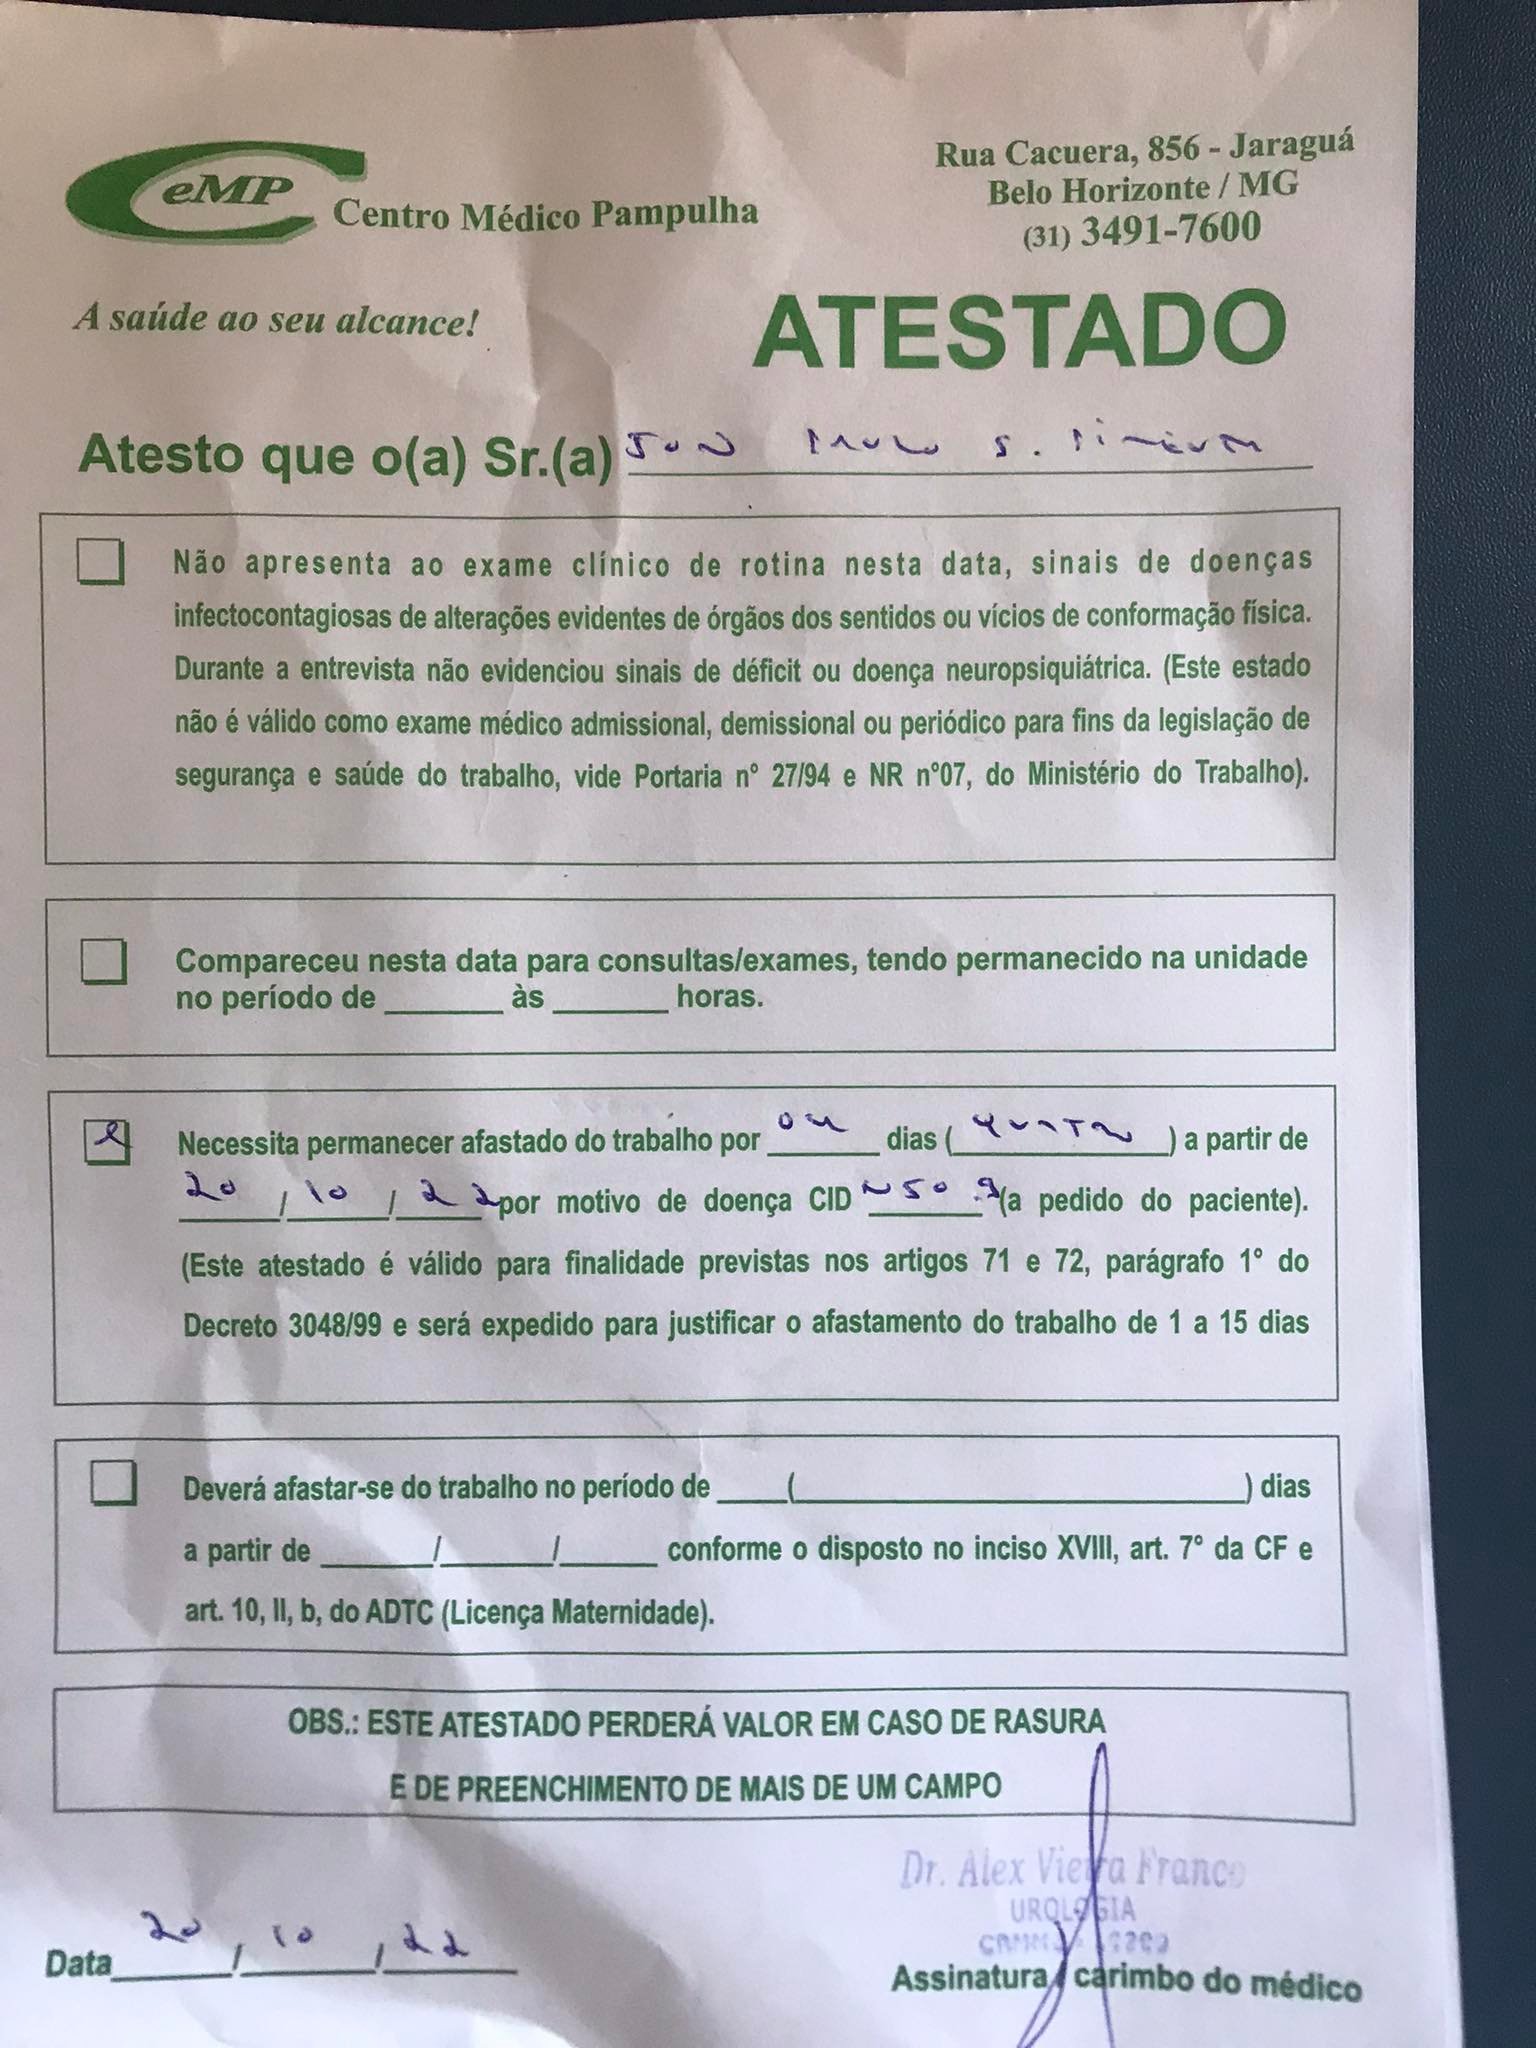 CeMP Centro Médico Pampulha
Rua Cacuera, 856 - Jaraguá
Belo Horizonte / MG
(31) 3491-7600
A saúde ao seu alcance!
ATESTADO
Atesto que o(a) Sr.(a) PAULO S.
Não apresenta ao exame clínico de rotina nesta data, sinais de doenças
infectocontagiosas de alterações evidentes de órgãos dos sentidos ou vícios de conformação física.
Durante a entrevista não evidenciou sinais de déficit ou doença neuropsiquiátrica. (Este estado
não é válido como exame médico admissional, demissional ou periódico para fins da legislação de
segurança e saúde do trabalho, vide Portaria nº 27/94 e NR nº07, do Ministério do Trabalho).
Compareceu nesta data para consultas/exames, tendo permanecido na unidade
no período de ______ às ______ horas.
Necessita permanecer afastado do trabalho por 04 dias ( QUATRO ) a partir de
20 / 10 / 22 por motivo de doença CID N50.9 (a pedido do paciente).
(Este atestado é válido para finalidade previstas nos artigos 71 e 72, parágrafo 1° do
Decreto 3048/99 e será expedido para justificar o afastamento do trabalho de 1 a 15 dias
Deverá afastar-se do trabalho no período de ____(____________________) dias
a partir de ______/______/_____ conforme o disposto no inciso XVIII, art. 7° da CF e
art. 10, II, b, do ADTC (Licença Maternidade).
OBS.: ESTE ATESTADO PERDERÁ VALOR EM CASO DE RASURA
E DE PREENCHIMENTO DE MAIS DE UM CAMPO
Dr. Alex Vieira Franco
UROLOGIA
Data 20 / 10 / 22
Assinatura / carimbo do médico